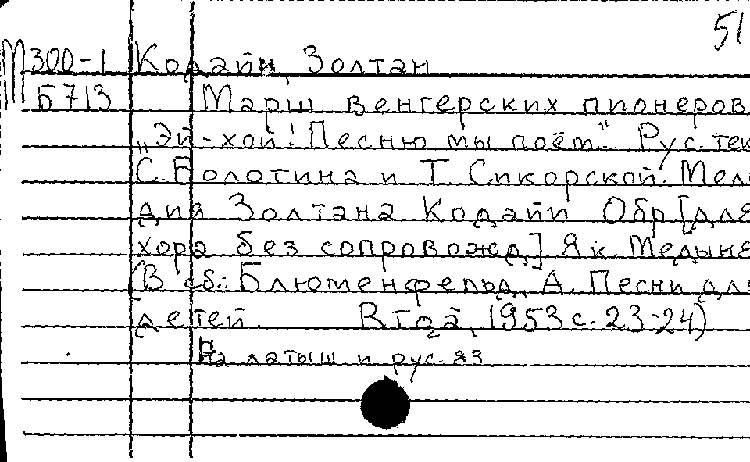 51
М300-1 Кодайи, Золтан
Б713 Марш венгерских пионеров
„Эй-хой! Песню мы поём". Рус. тек
С. Болотина и Т. Сикорской. Мело
дия Золтана Кодайи Обр [для
хора без сопровожд.] Як Медынь
(В сб.: Блюменфельд, А. Песни для
детей. Рига, 1953 с. 23-24)
На латыш и рус. яз